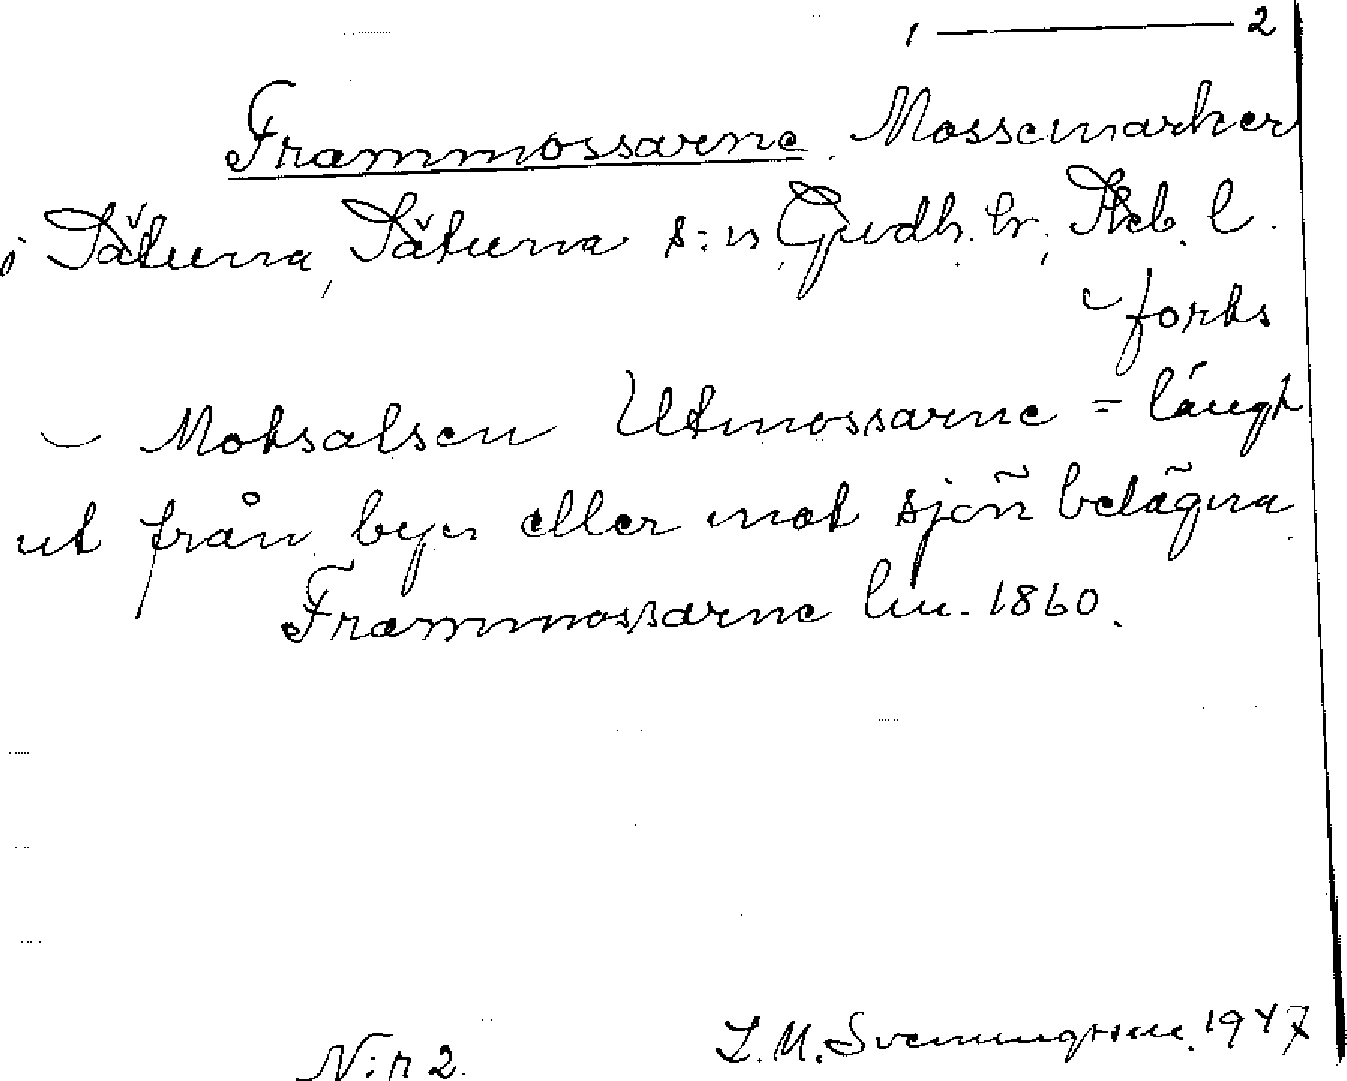 1 — 2
Frammossarne. Mossemarker
i Sätuna, Sätuna s:n, Gudh. hr, Skb. l.
~ forts
~ Motsatsen Utmossarne = långt
ut från byn eller mot sjön belägna.
Frammossarne lm. 1860.
N:r 2. L.M. Svenungsson. 1947